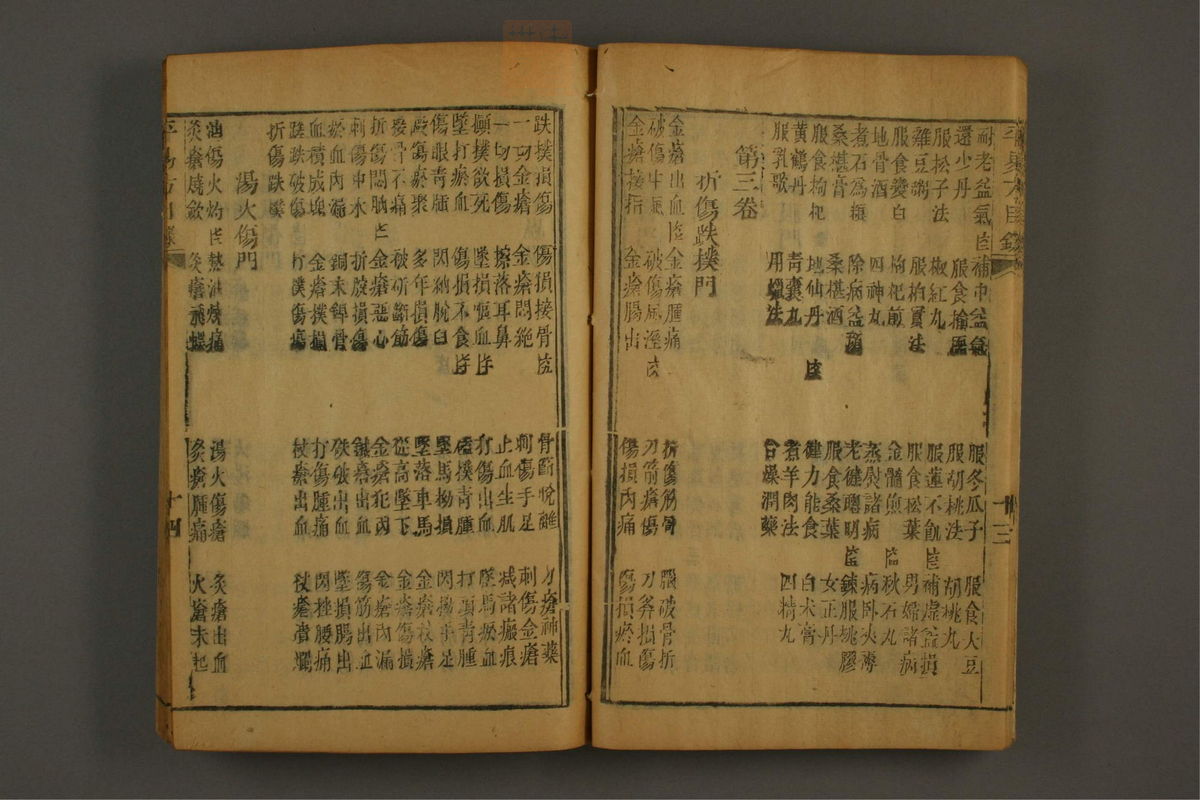 耐老益氣 補中益氣 服冬瓜子 服食大豆
還少丹 服食 服胡桃法 胡桃丸
服松子法 椒紅丸 服蓮不飢 補虛益損
雜豆粥 服柏實法 服食松葉 男婦諸病
服食蔞白 枸杞煎 金髓煎 秋石丸
地骨酒 四神丸 蒸熨諸病 病臥夾蓐
煮石為糧 除病益 老健聰明 鍊服桃膠
桑椹膏 桑椹酒 服食桑葉 女正丹
服食枸杞 地仙丹 健力能食 白朮膏
黃鶴丹 青囊丸 煮羊肉法 四精丸
服乳歌 用蠟法 合燥潤藥
第三卷
折傷跌撲門
金瘡出血 金瘡腫痛 折傷筋骨 腦破骨折
破傷中風 破傷風溼 刀箭瘡傷 刀斧損傷
金瘡接指 金瘡腸出 傷損內痛 傷損瘀血
十三
跌撲損傷 傷損接骨 骨斷脫離 刀瘡神藥
一切金瘡 金瘡悶絕 刺傷手足 刺傷金瘡
一切損傷 擦落耳鼻 止血生肌 滅諸瘢痕
攧撲欲死 墜損嘔血 打傷出血 墜馬瘀血
墜打瘀血 傷損不食 磕撲青腫 打頭青腫
傷眼青腫 閃肭脫臼 墜馬拗損 閃拗手足
毆傷瘀聚 多年損傷 墜落車馬 金瘡杖瘡
接骨不痛 破斫斷筋 從高墜下 金瘡傷損
折傷悶 金瘡惡心 金瘡犯內 金瘡內漏
刺傷中水 折腕損傷 鍼瘡出血 傷筋出血
瘀血內漏 銅末銲骨 破出血 墜損腸出
血積成塊 金瘡撲損 打傷腫痛 閃挫腰痛
跌破傷 打撲傷 杖瘡出血 杖瘡潰爛
折傷跌撲
湯火傷門
油傷火灼 熱油燒痛 湯火傷瘡 灸瘡出血
灸瘡燒 灸瘡飛蝶 灸瘡腫痛 火瘡未起
十四